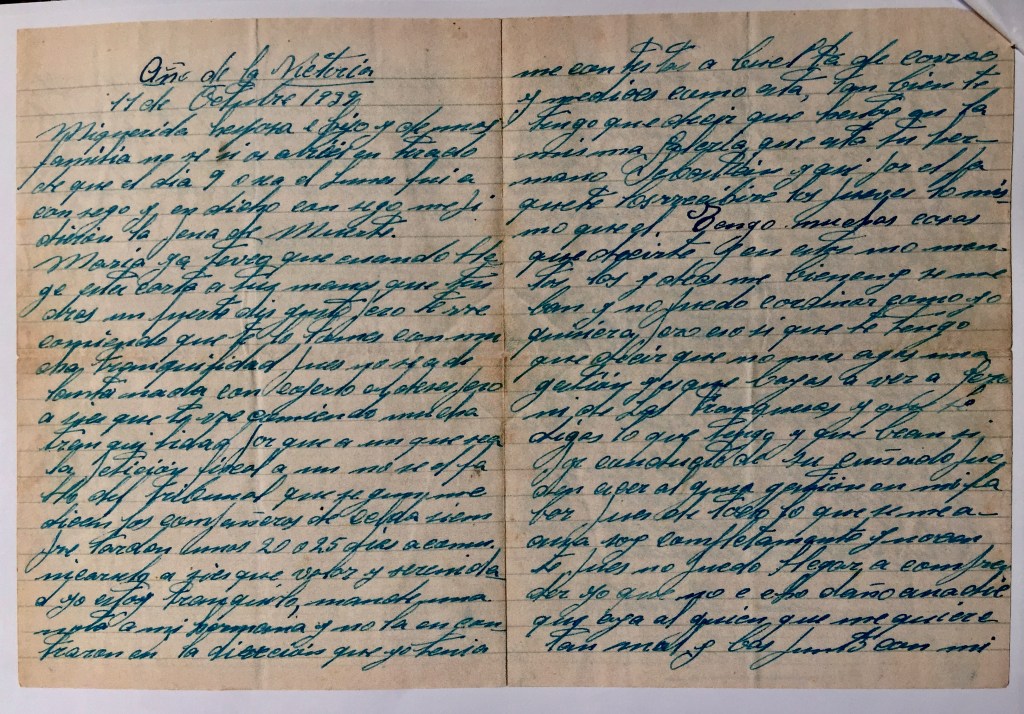 Año de la Victoria
11 de Octubre 1939
Mi querida esposa e hijo y demas
familia no se si os abrán entrado
de que el dia 9 o sea el lunes fui a
consego y en dicho consego me pi
dieron la pena de Muerte.
Maria ya se veo que cuando lle
ge esta carta a tus manos que ten
dras un fuerte disgusto pero te rre
comiendo que te lo tomes con mu
cha tranquilidad pues no se a de
tanta nada con
a sies que te rre comiendo mucha
tranquilidad por que a un que sea
la peticion fiscal a un no se el fa
llo del tribunal que segun me
dicen los compañeros de celda siem
pre tardan unos 20 o 25 dias a comu
nicarnlo a sies que valor y serenida
d yo estoy tranquilo, mande una
nota a mi hermana y no la encon
traron en la dirección que yo tenia
me contestas a buelta de correo
y medices como esta, tan bien te
tengo que decir que estoy en la
misma Galeria que esta tu her-
mano Sebastián y que por el pa
quete los rrecibire los jueves lo mis-
mo que el. Tengo muchas cosas
que decirte y en estos mo men-
tos los y otras me bienen y se me
ban y no puedo cordinar como yo
quisiera, pero eso si que te tengo
que decir que no mas agas una
gestion y es que bayas a ver a
ni de Las Franqueras y que le
digas lo que tengo y que bean si
por conducto de su cuñado pue
den acer al guna gestion en mi fa
bor pues de todo lo que se me a-
cusa soy completamente y nocen
te pues no puedo llegar a compren
der yo que no e echo daño a nadie
que aya al guien que me quiere
tan mal, y bas junto con mi